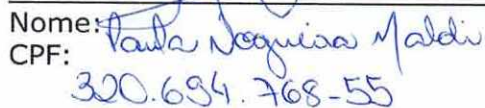 Nome: Paula Nogueira Maldi
CPF:
320.694.768-55